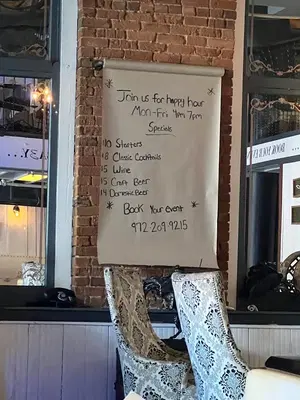 Join us for happy hour
Mon-Fri 4pm 7pm
Specials
10 Starters
$8 Classic Cocktails
$5 Wine
$5 Craft Beer
$4 Domestic Beer
* Book Your Event *
972.209.9215